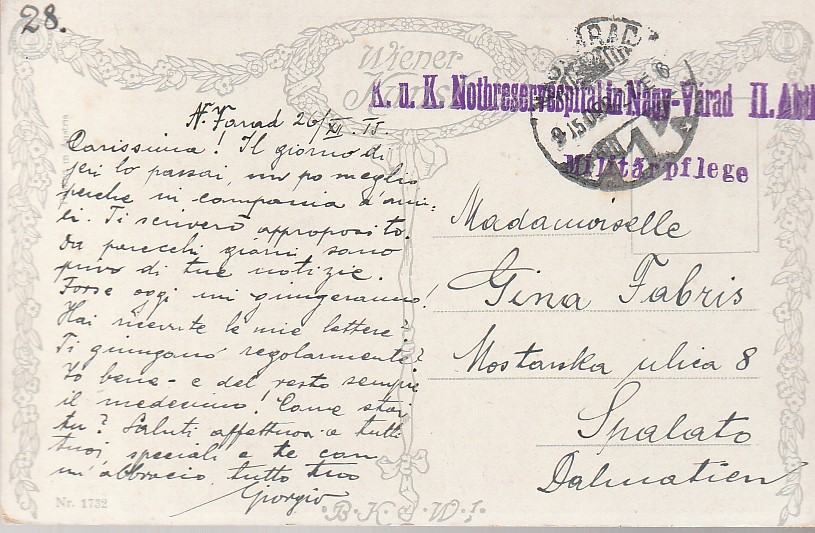 28.
Wiener
K. u. K. Nothreservespital in Nagy-Várad II. Abth
Militärpflege
N. Varad 26/XII. 15.
Carissima! Il giorno di
jeri lo passai, un po meglio
perche in compania d'ami-
ci. Ti scriverò approposito.
Da parecchi giorni sono
privo di tue notizie.
Forse oggi mi giungeranno!
Hai ricevute le mie lettere?
Ti giungono regolarmente?
Io bene - e del resto sempre
il medesimo! Come stai
tu? Saluti affettuosi a tutti
tuoi, speciali a te con
un' abbraccio tutto tuo
Giorgio
Madamoiselle
Gina Fabris
Mostarska ulica 8
Spalato
Dalmatien
Nr. 1732
B.K.W.I.